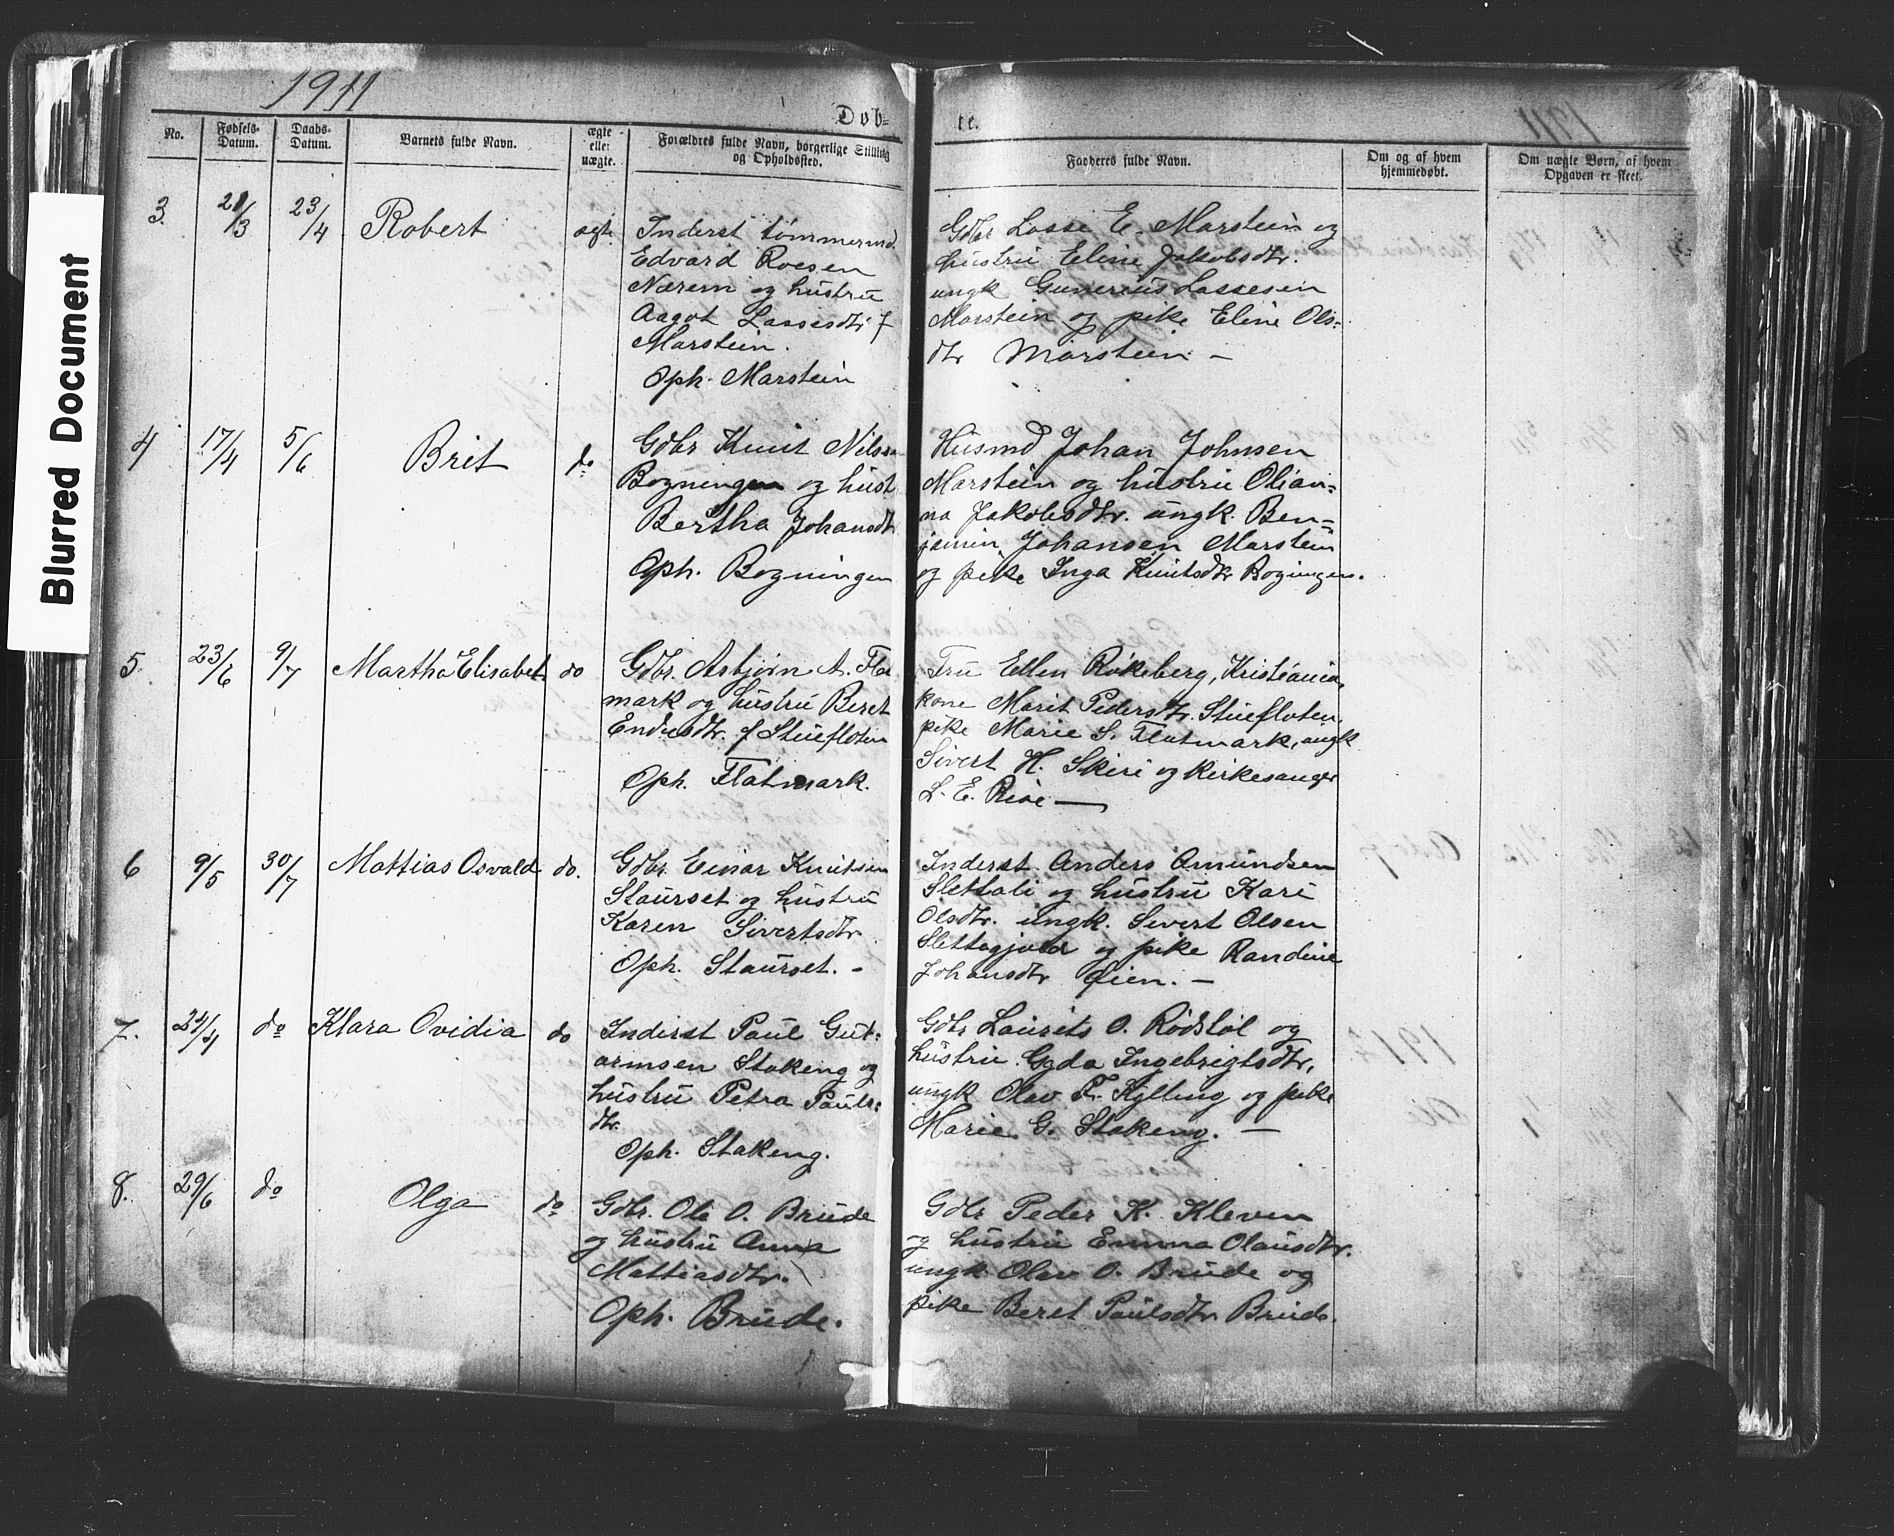 Blurred Document
1911
Døb=
te.
1911
No.
Fødsels-Datum.
Daabs-Datum.
Barnets fulde Navn.
ægte eller uægte.
Forældres fulde Navn, borgerlige Stilling og Opholdssted.
Fadderes fulde Navn.
Om og af hvem hjemmedøbt.
Om uægte Børn, af hvem Opgaven er skeet.
3. 21/3 23/4 Robert ægte.
Inderst tømmermd.
Edvard Roesen
Nærem og hustru
Aagot Lassesdtr f
Marstein.
Oph. Marstein
Gdbr Lasse E. Marstein og
hustru Eline Jakobsdtr.
ungk Gunerius Lassesen
Marstein og pike Eline Ols=
dtr Marstein —
4 17/4 5/6 Brit do
Gdbr Knut Nilss
Bogningen og hust
Bertha Johansdtr
Oph. Bogningen
Husmd Johan Johnsen
Marstein og hustru Olian=
na Jakobsdtr. ungk. Ben=
jamin Johansen Marstein
og pike Inga Knutsdtr Bogningen.
5. 23/6 9/7 Martha Elisabet do
Gdbr. Asbjørn A. Flat
mark og hustru Beret
Endresdtr. f Stuefloten
Oph. Flatmark.
Fru Ellen Røkeberg, Kristiania,
kone Marit Pedersdtr. Stuefloten,
pike Marie S. Flatmark, ungk
Sivert H. Skiri og kirkesanger
L. E. Rise —
6 9/5 30/7 Mattias Osvald do.
Gdbr. Einar Knutsen
Staurset og hustru
Karen Sivertsdtr.
Oph. Staurset. -
Inderst Anders Amundsen
Slettali og hustru Kari
Olsdtr. ungk. Sivert Olsen
Slettagjerd og pike Randine
Johansdtr Øien. —
7. 24/4 do Klara Ovidia do
Inderst Paul Gut=
ormsen Stokeng og
hustru Petra Pauls=
dtr.
Oph. Stokeng.
Gdbr Laurits O. Rødstøl og
hustru Gyda Ingebrigtsdtr,
ungk Olav F. Kylling og pike
Marie G. Stokeng. —
8. 29/6 do Olga do
Gdbr. Ole O. Brude
og hustru Anna
Mattiasdtr.
Oph. Brude.
Gdbr Peder K. Kleven
og hustru Emma Olausdtr.
ungk. Olav O. Brude og
pike Beret Paulsdtr Brude.